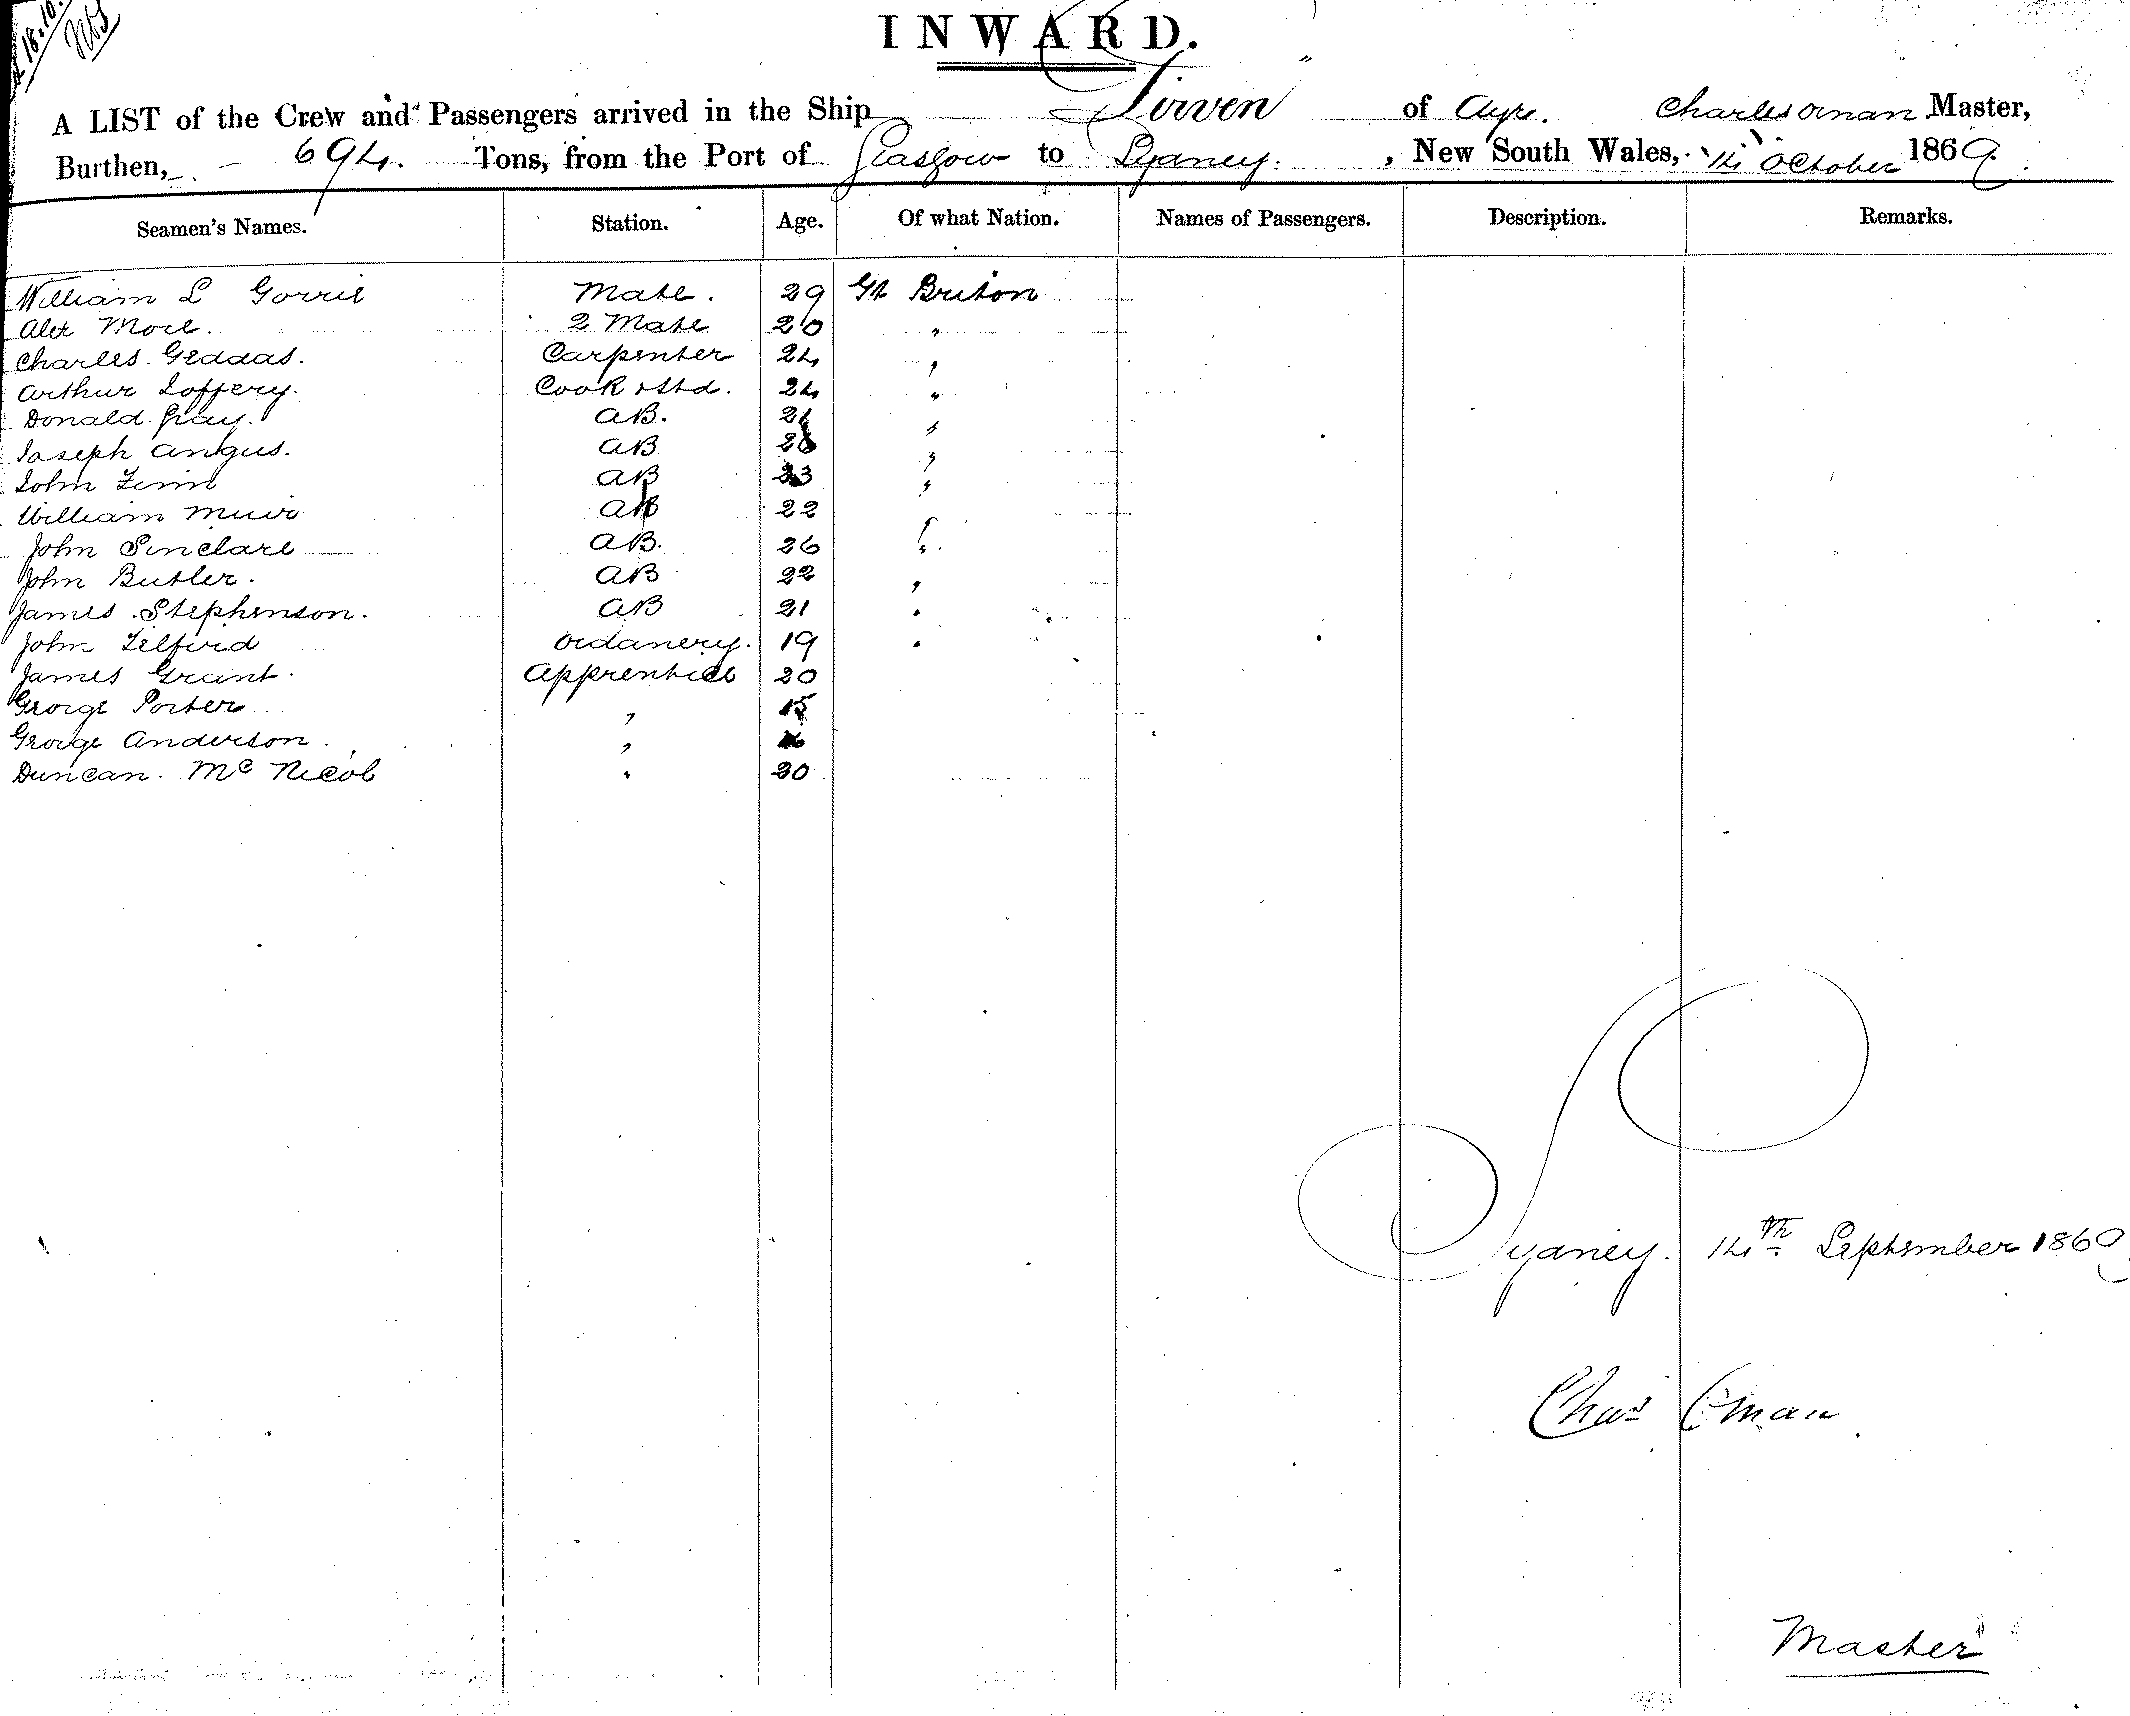 18.10.
INWARD.
A LIST of the Crew and Passengers arrived in the Ship Sirven of Ayr. Charles oman Master,
Burthen, 694. Tons, from the Port of Glasgow to Sydney. , New South Wales, 14 October 1869.
Seamen's Names. Station. Age. Of what Nation. Names of Passengers. Description. Remarks.
William L Gorrie Mate. 29 Gt Briton
Alex Moil. 2 Mate 20 "
Charles Geddas. Carpenter 24 "
Arthur Joffery. Cook & Std. 24 "
Donald Gray. AB. "
Joseph Angus. AB "
John AB 23 "
William Muir AB 22
John Sinclare AB. 26 "
John Butler. AB 22 "
James Stephenson. AB 21 "
John Telfird ordanery. 19 "
James Grant. Apprentice 20
George Porter " 15
George Anderson "
Duncan. Mc Nicol " 20
Sydney. 14th September 1869
Chas Oman
Master